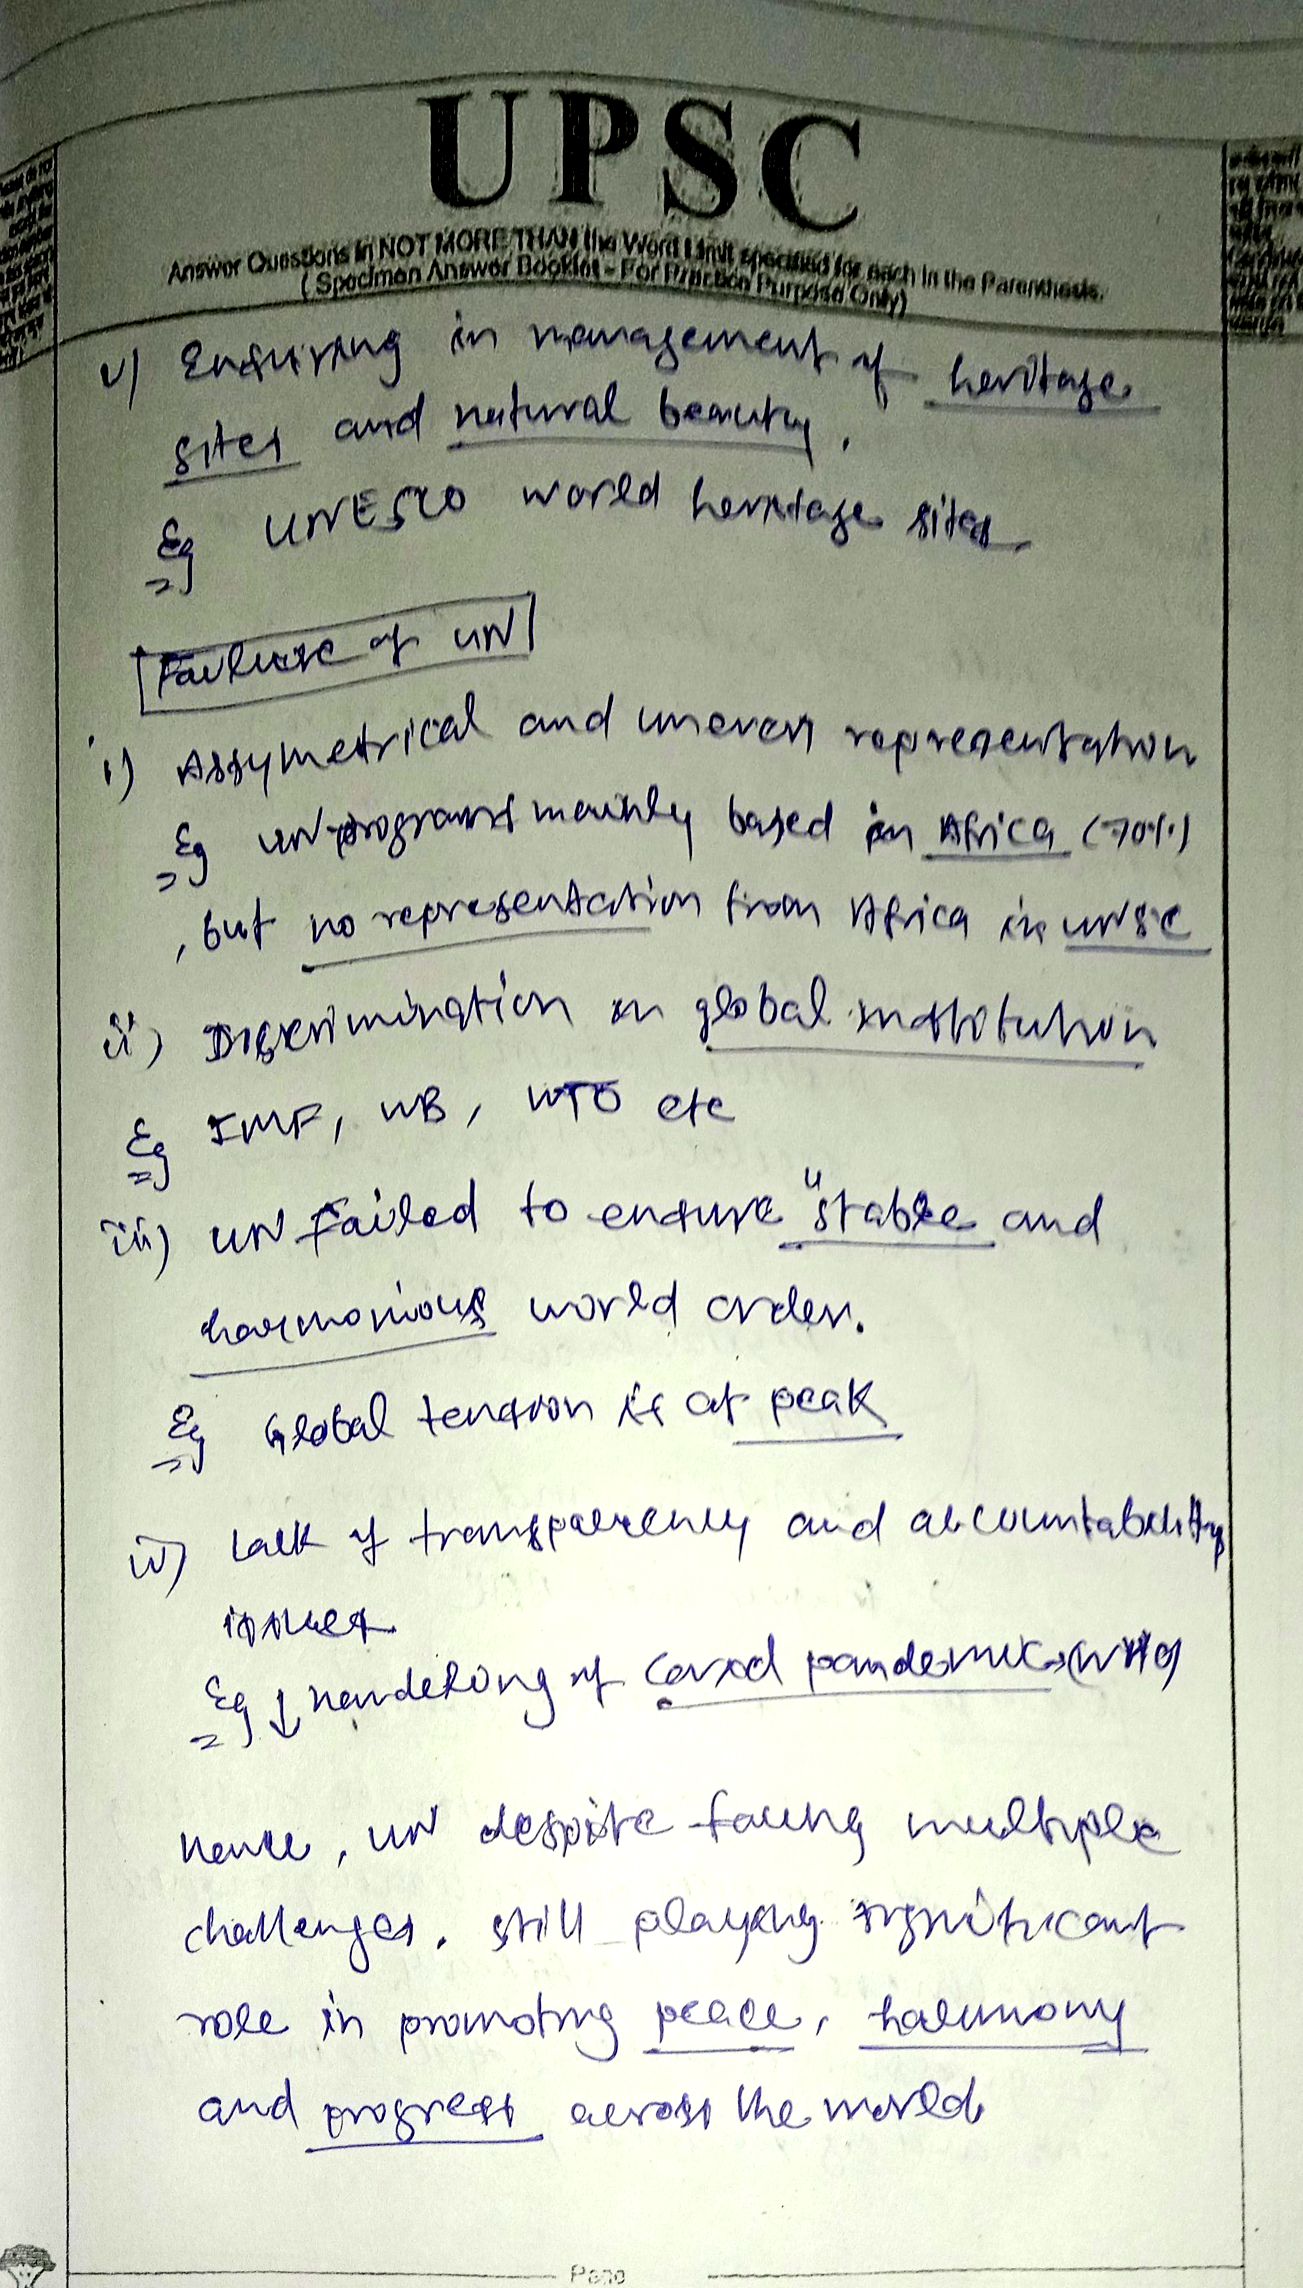 UPSC
Answer Questions in NOT MORE THAN the Word Limit specified for each in the Parenthesis.
( Specimen Answer Booklet - For Practice Purpose Only)
v) Ensuring in management of heritage
sites and natural beauty.
Eg UNESCO world heritage sites.
Failure of UN
i) Assymetrical and uneven representation
Eg UN programs mainly based in Africa (70%)
, but no representation from Africa in UNSC
ii) Discrimination in global institution
Eg IMF, WB, WTO etc
iii) UN Failed to ensure "stable and
harmonious world order.
Eg Global tension is at peak
iv) Lack of transparency and accountability
issues
Eg ↓ handeling of Covid pandemic → (WHO)
Hence, UN despite facing multiple
challenges, still playing significant
role in promoting peace, harmony
and progress across the world
Page